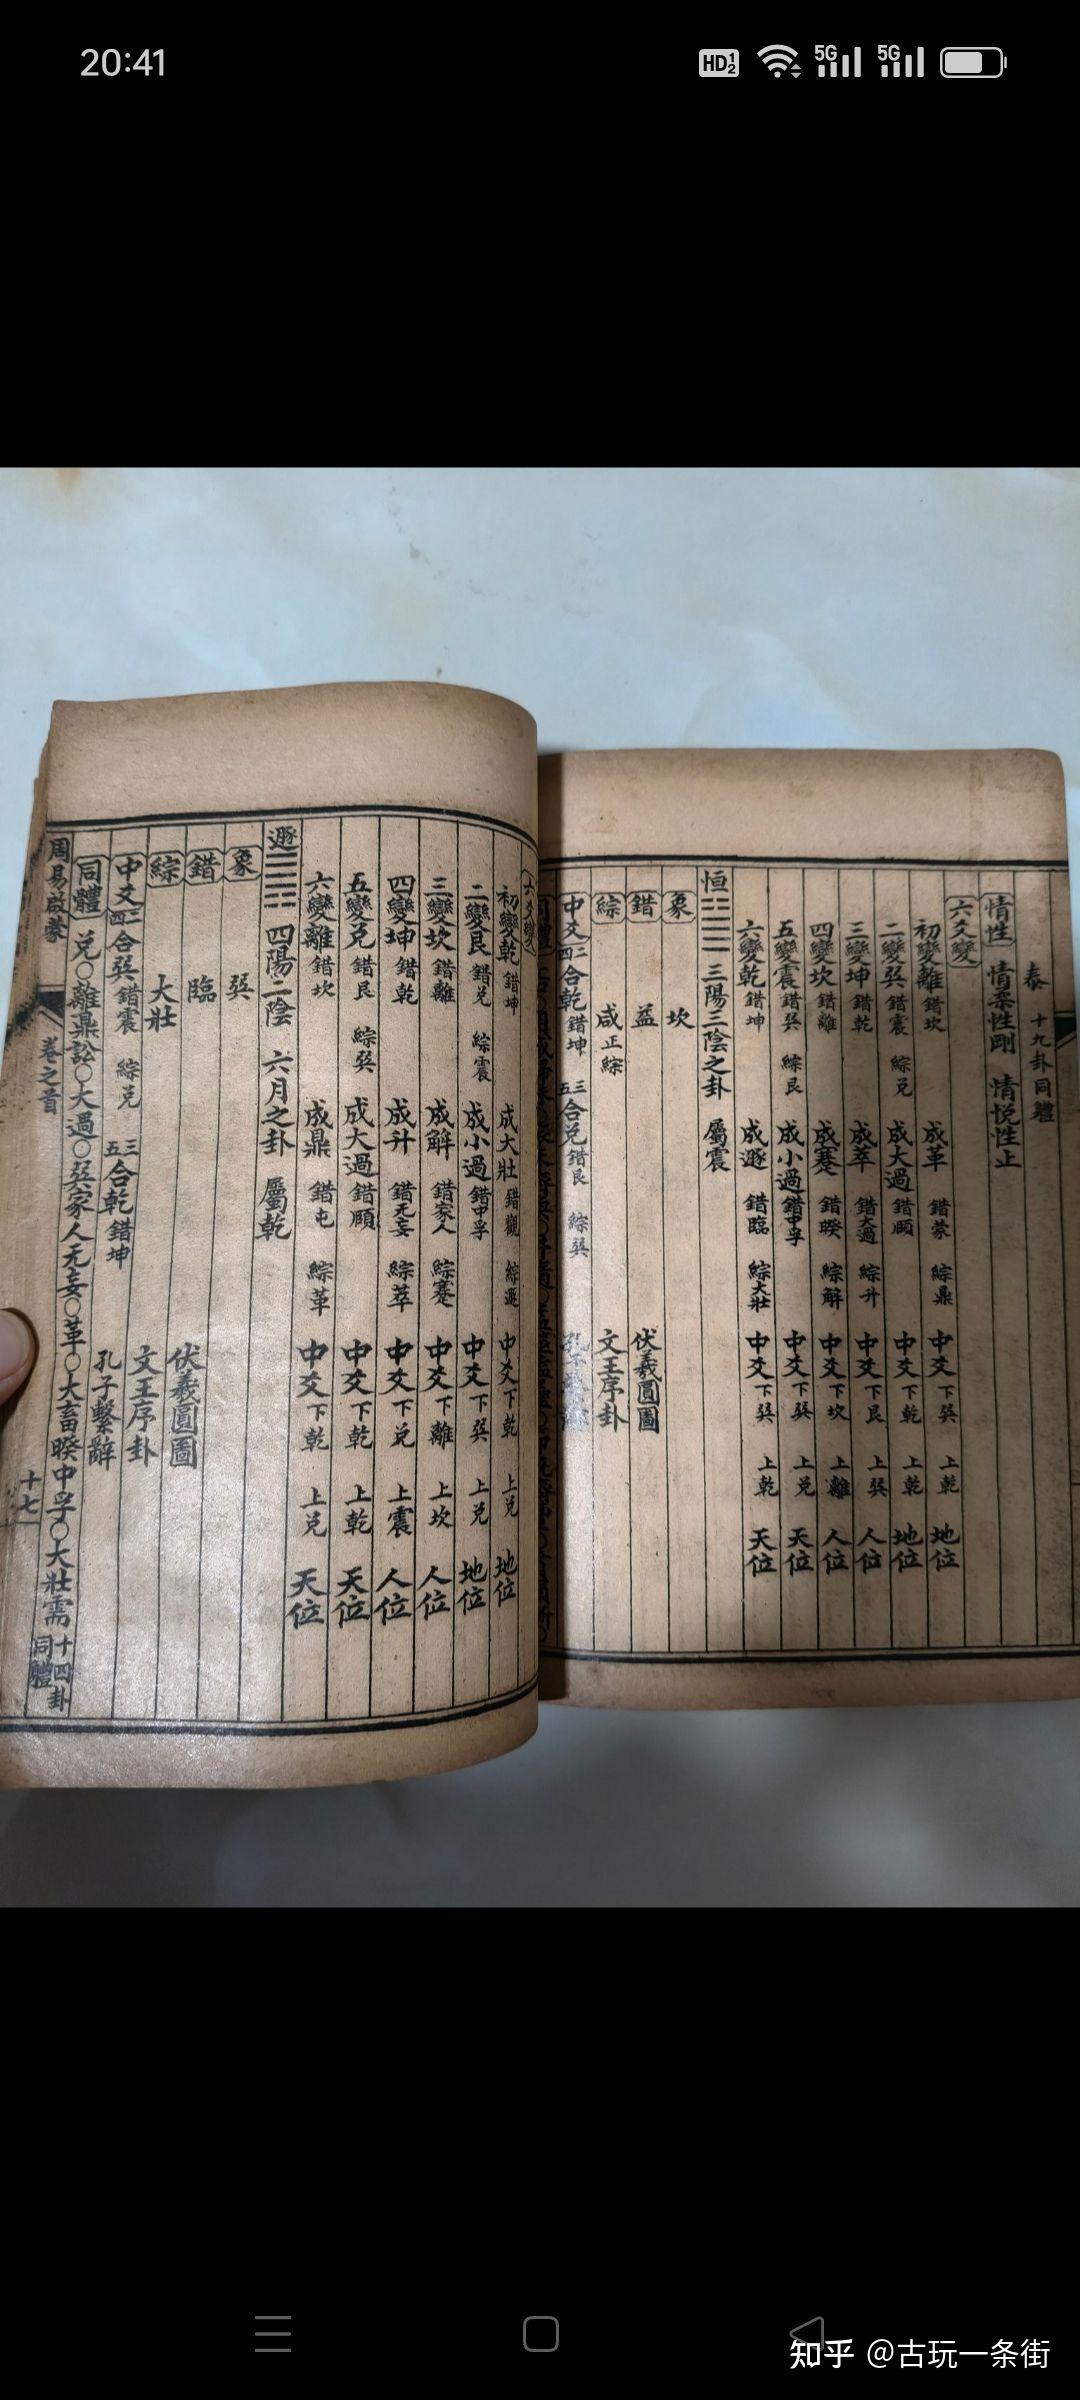 20:41
HD 1 2
5G
5G
泰 十九卦同體
情性 情柔性剛 情悅性止
六爻變
初變離 錯坎 成革 錯蒙 綜鼎 中爻 下巽 上乾 地位
二變巽 錯震 綜兌 成大過 錯頤 中爻 下乾 上乾 地位
三變坤 錯乾 成萃 錯大過 綜升 中爻 下艮 上巽 人位
四變坎 錯離 成蹇 錯睽 綜解 中爻 下坎 上離 人位
五變震 錯巽 綜艮 成小過 錯中孚 中爻 下巽 上兌 天位
六變乾 錯坤 成遯 錯臨 綜大壯 中爻 下巽 上乾 天位
恒 三陽三陰之卦 屬震
象 坎
錯 益 伏羲圓圖
綜 咸 正綜 文王序卦
中爻 二四合乾 錯坤 三五合兌 錯艮 綜巽
六爻變
初變乾 錯坤 成大壯 錯觀 綜遯 中爻 下乾 上兌 地位
二變艮 錯兌 綜震 成小過 錯中孚 中爻 下巽 上兌 地位
三變坎 錯離 成解 錯家人 綜蹇 中爻 下離 上坎 人位
四變坤 錯乾 成升 錯无妄 綜萃 中爻 下兌 上震 人位
五變兌 錯艮 綜巽 成大過 錯頤 中爻 下乾 上乾 天位
六變離 錯坎 成鼎 錯屯 綜革 中爻 下乾 上兌 天位
遯 四陽二陰 六月之卦 屬乾
象 巽
錯 臨 伏羲圓圖
綜 大壯 文王序卦
中爻 二四合巽 錯震 綜兌 三五合乾 錯坤 孔子繫辭
同體 兌○離鼎訟○大過○巽家人无妄○革○大畜睽中孚○大壯需 十四卦同體
周易啟蒙 卷之首 十七
知乎 @古玩一条街